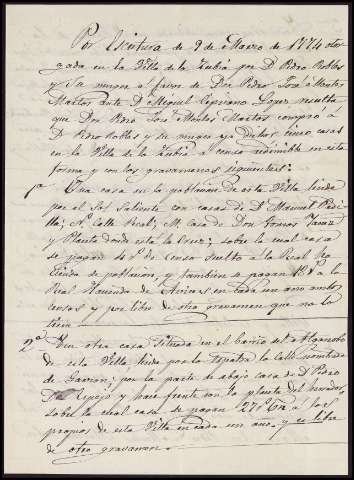 Por Escritura de 9 de Marzo de 1774 otor
gada en la Villa de la Zubia por Dn Pedro Robles
y Su muger a favor de Don Pedro José Montes
Martos ante Dn Miguel Cipriano Lopez resulta
que Don Pedro José Montes Martos compro a
Dn Pedro Robles y su muger dichos cinco casas
en la Villa de la Zubia a censo redimible en esta
forma y con los gravamenes siguientes:
1ª Una casa en la poblacion de esta Villa linda
por el Sol Saliente con casas de Dn Manuel Padi
lla; N. Calle Real; M. casa de Don
y Planta donde esta la Cruz; sobre la cual casa
se pagan de censo suelto a la Real Ha
cienda de poblacion, y tambien se pagan a la
Real Hacienda de en cada un año ambos
censos y por libre de otro gravamen que no lo
tiene
2ª En otra casa situada en el barrio del
de esta Villa linda por la espalda la calle nombrada
de Garzon; por la parte de abajo casa de Dn Pedro
Dn y hace frente con la planta del
sobre la cual casa se pagan a los
propios de esta Villa en cada un año y es libre
de otro gravamen